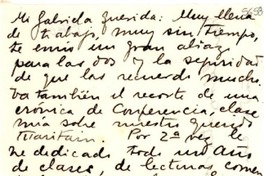 Mi Gabriela querida: Muy llena
de trabajo, muy sin tiempo,
te envío un gran abrazo
para las dos y la seguridad
de que las recuerdo mucho.
Va también el recorte de una
crónica de Conferencia, clase
mía sobre nuestro querido
Maritain. Por 2ª vez le
he dedicado todo un año
de clases, de lecturas, comen